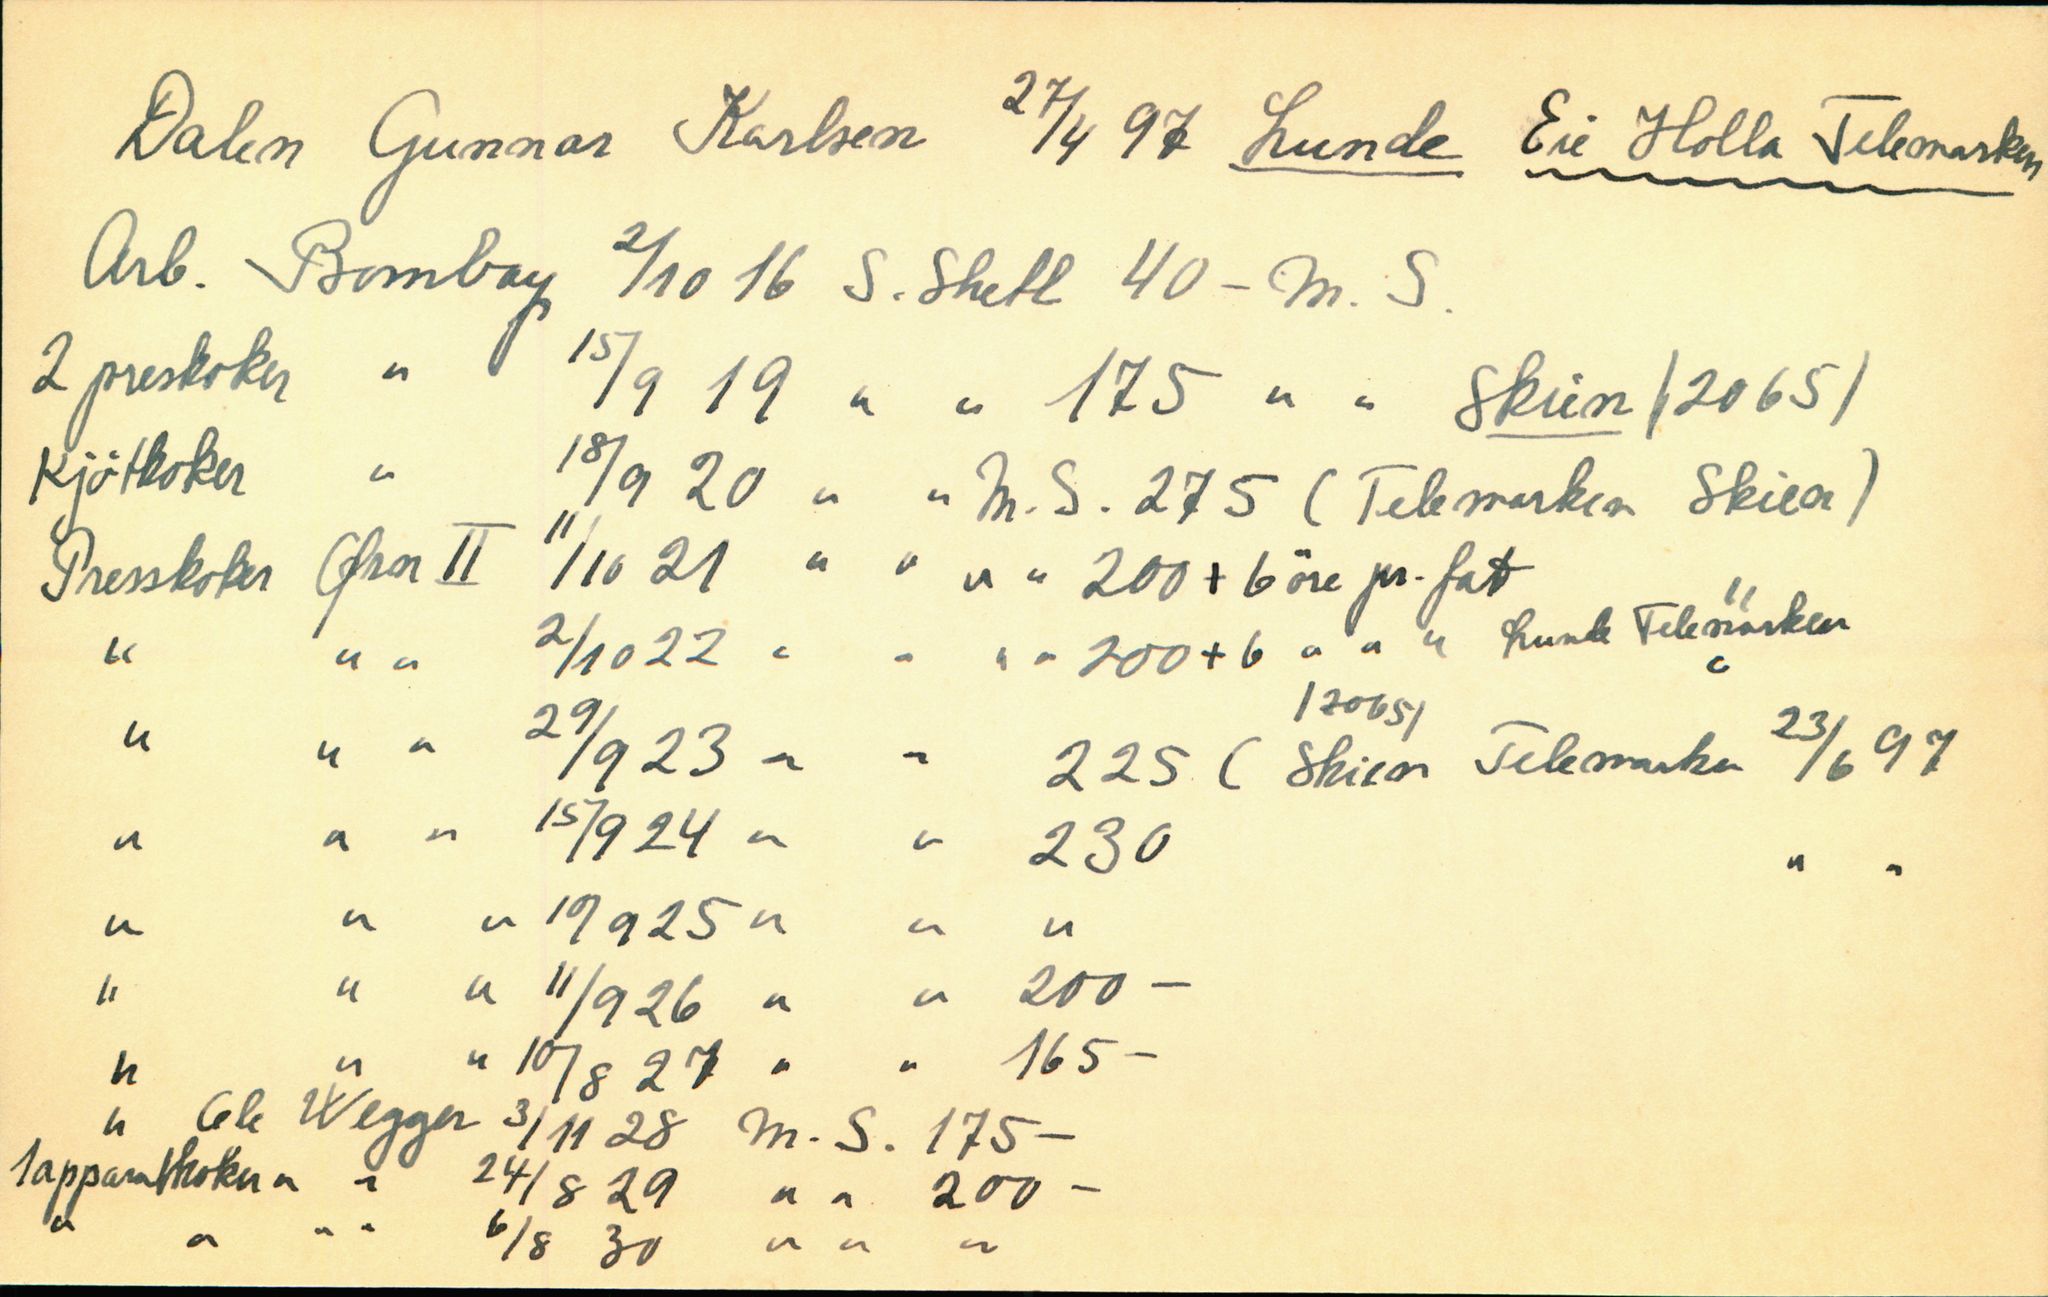 Dalen Gunnar Karlsen 27/4 97 Lunde Eie Holla Telemarken
Arb. Bombay 2/10 16 S. Shetl 40 - M. S.
2 preskoker " 15/9 19 " " 175 " " Skien /2065/
Kjötkoker " 18/9 20 " " M. S. 275 ( Telemarken Skien )
Presskoker Ørn II 11/10 21 " " " " 200 + 6 öre pr. fat "
" " " 2/10 22 " " " " 200 + 6 " " " Lunde Telemarken
" /2065/
" " " 29/9 23 " " 225 ( Skien Telemarken 23/6 97
" " " 15/9 24 " " 230 " "
" " " 10/9 25 " " "
" " " 11/9 26 " " 200 -
" " " 10/8 27 " " 165 -
" Ole Wegger 3/11 28 M. S. 175 -
1 apparatkoker " " 24/8 29 " " 200 -
" " " " 6/8 30 " " "